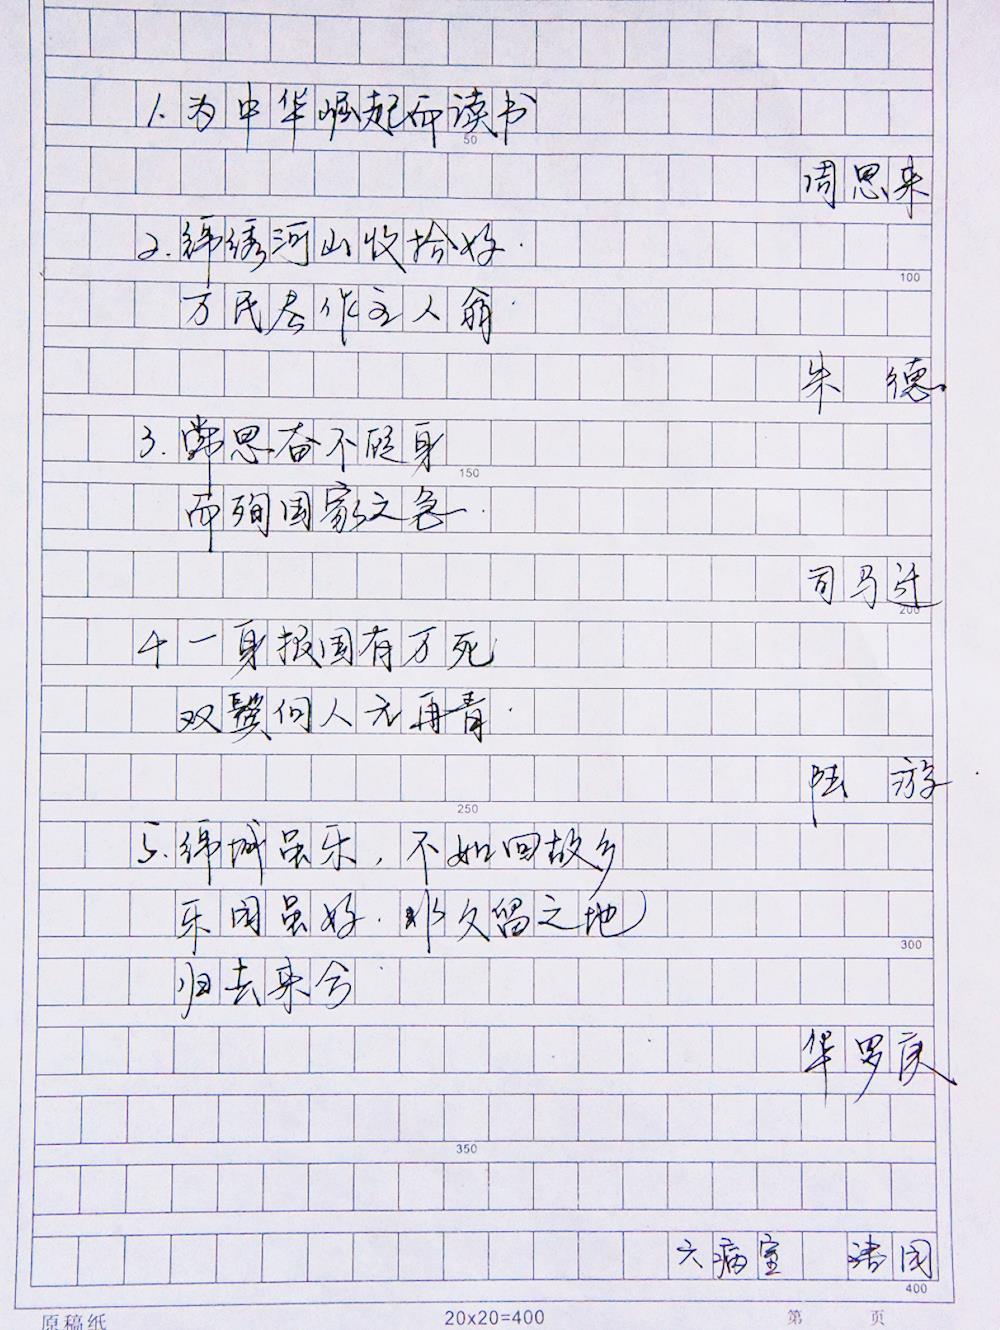 1.为中华崛起而读书
50
周恩来
2.锦绣河山收拾好.
100
万民尽作主人翁.
朱 德.
3.常思奋不顾身
150
而殉国家之急.
司马迁
200
4 一身报国有万死
双鬓向人无再青.
陆 游
250
5.锦城虽乐,不如回故乡
乐园虽好.非久留之地
300
归去来兮.
华罗庚
350
六病室 国
400
原稿纸 20x20=400 第 页